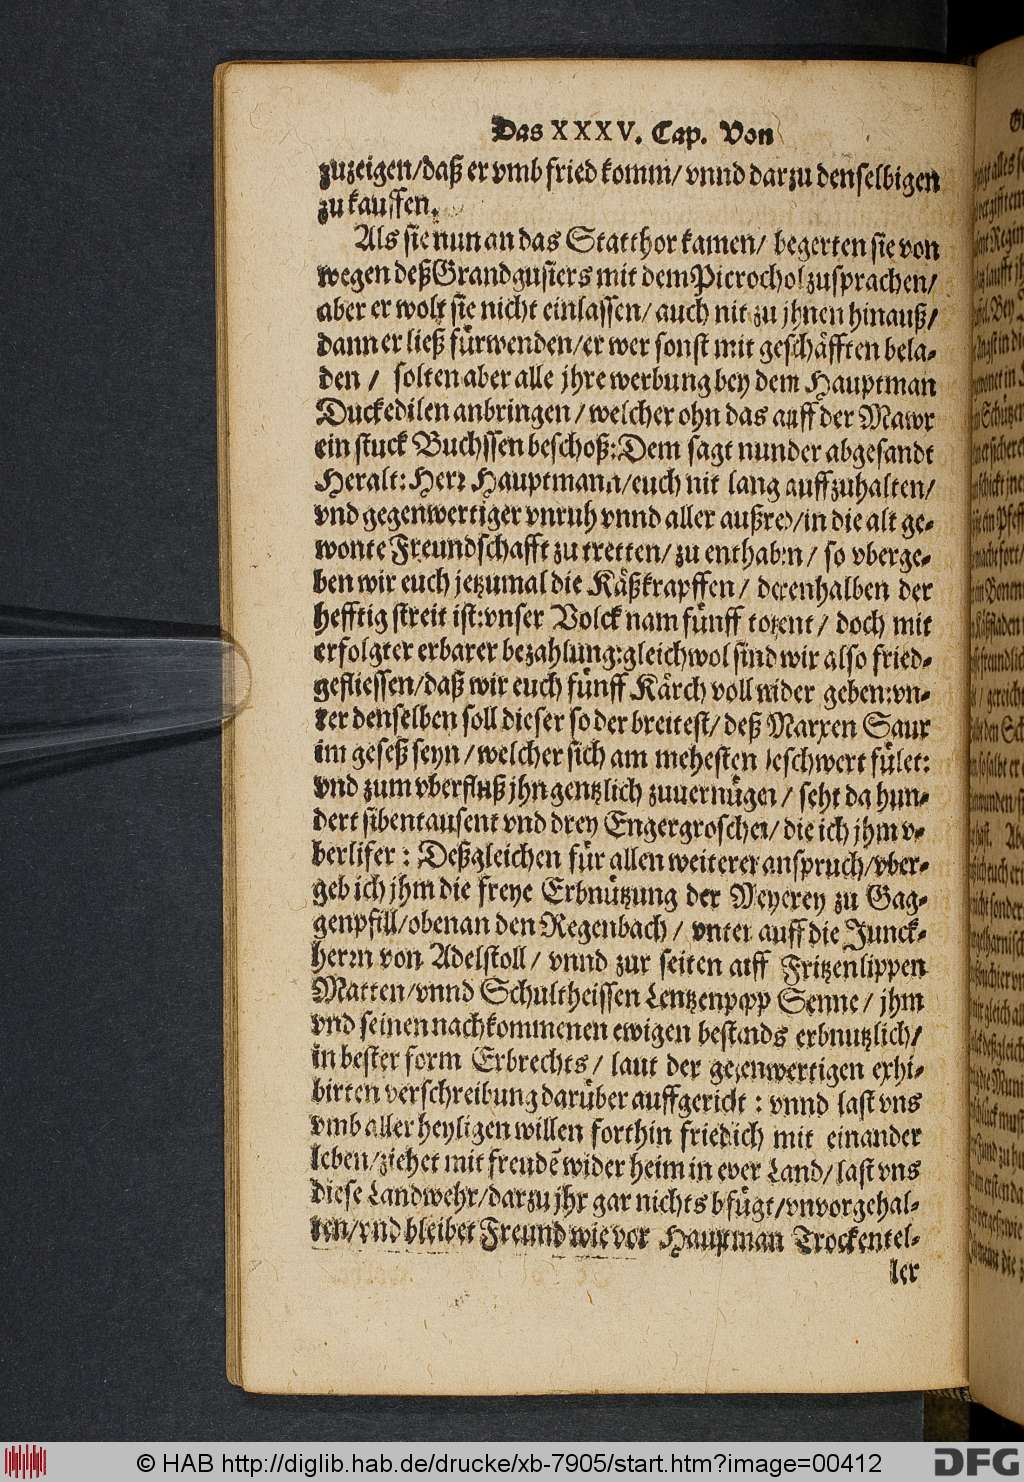 Das XXXV. Cap. Von
zuzeigen/daß er vmb fried komm/ vnnd darzu denselbigen
zu kauffen.
Als sie nun an das Statthor kamen/ begerten sie von
wegen deß Grandgusiers mit dem Picrochol zusprachen/
aber er wolt sie nicht einlassen/ auch nit zu jhnen hinauß/
dann er ließ fürwenden/er wer sonst mit geschäfften bela-
den / solten aber alle jhre werbung bey dem Hauptman
Duckedilen anbringen / welcher ohn das auff der Mawr
ein stuck Buchssen beschoß: Dem sagt nun der abgesandt
Heralt: Herr Hauptmann/euch nit lang auffzuhalten/
vnd gegenwertiger vnruh vnnd aller außred/in die alt ge-
wonte Freundschafft zu tretten/ zu enthaben/ so vberge-
ben wir euch jetzumal die Käßkrapffen/ derenhalben der
hefftig streit ist: vnser Volck nam fünff totzent/ doch mit
erfolgter erbarer bezahlung: gleichwol sind wir also fried-
gefliessen/daß wir euch fünff Kärch voll wider geben: vn-
ter denselben soll dieser so der breitest/ deß Marxen Saur
im geseß seyn/welcher sich am mehesten beschwert fület:
vnd zum vberfluß jhn gentzlich zuuernügen/ seht da hun-
dert sibentausent vnd drey Engergroschen/ die ich jhm v-
berlifer : Deßgleichen für allen weiteren anspruch/vber-
geb ich jhm die freye Erbnützung der Meyerey zu Gag-
genpfill/obenan den Regenbach / vnter auff die Junck-
herrn von Adelstoll/ vnnd zur seiten auff Fritzenlippen
Matten/vnnd Schultheissen Lentzenpopp Senne/ jhm
vnd seinen nachkommenen ewigen bestands erbnutzlich/
in bester form Erbrechts/ laut der gegenwertigen exhi-
birten verschreibung darüber auffgericht : vnnd last vns
vmb aller heyligen willen forthin friedlich mit einander
leben/ziehet mit freudē wider heim in ewer Land/ last vns
diese Landwehr/darzu jhr gar nichts bfügt/vnvorgehal-
ten/vnd bleibet Freund wie vor Hauptman Trockentel-
ler
© HAB http://diglib.hab.de/drucke/xb-7905/start.htm?image=00412
DFG